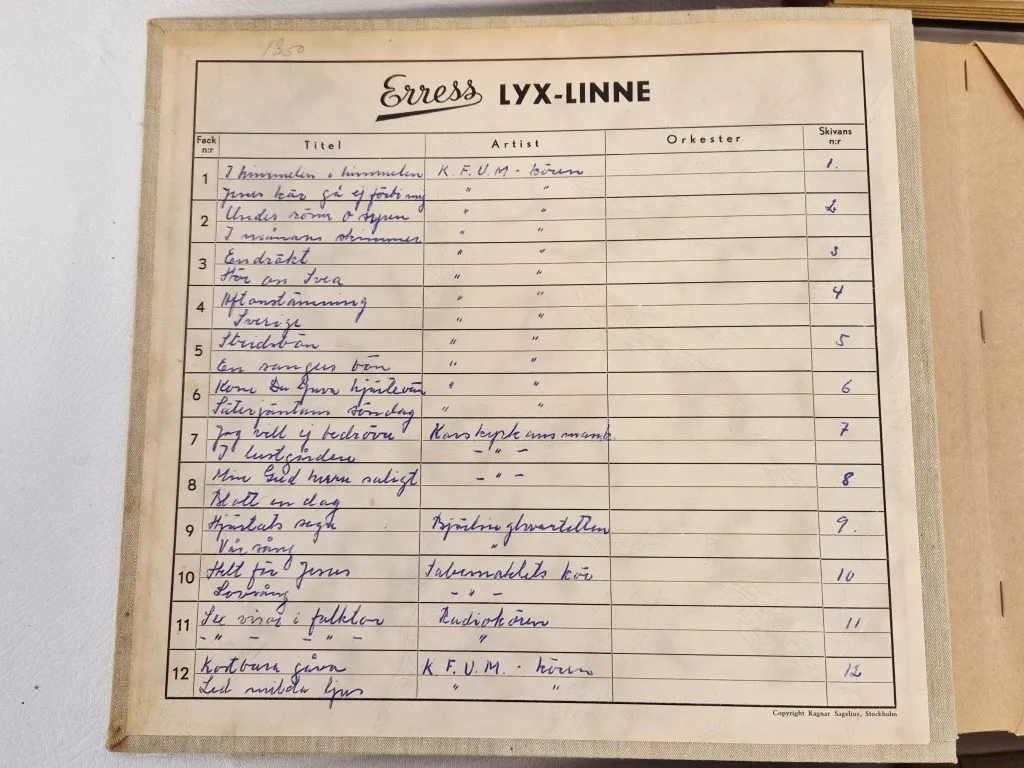 1350
Erress LYX-LINNE
Fack n:r Titel Artist Orkester Skivans n:r
1 I himmelen i himmelen K.F.U.M-kören 1.
Jesus kär gå ej förbi mig " "
2 Under rönn o syren " " 2
I månans skimmer " "
3 Endräkt " " 3
Hör oss Svea " "
4 Aftonstämning " " 4
Sverige " "
5 Stridsbön " " 5
En sangers bön " "
6 Kom Du ljuva hjärtevän " " 6
Säterjäntans söndag " "
7 Jag vill ej bedröva 7
I lustgården - " -
8 Min Gud huru saligt - " - 8
Blott en dag
9 Hjärtats saga 9.
Vår sång "
10 Helt för Jesus Tabernaklets kör 10
Lovsång - " -
11 visor i folkton Radiokören 11
- " - - " - "
12 Kostbara gåva K.F.U.M.-kören 12
Led milda ljus " "
Copyright Ragnar Sagelius, Stockholm